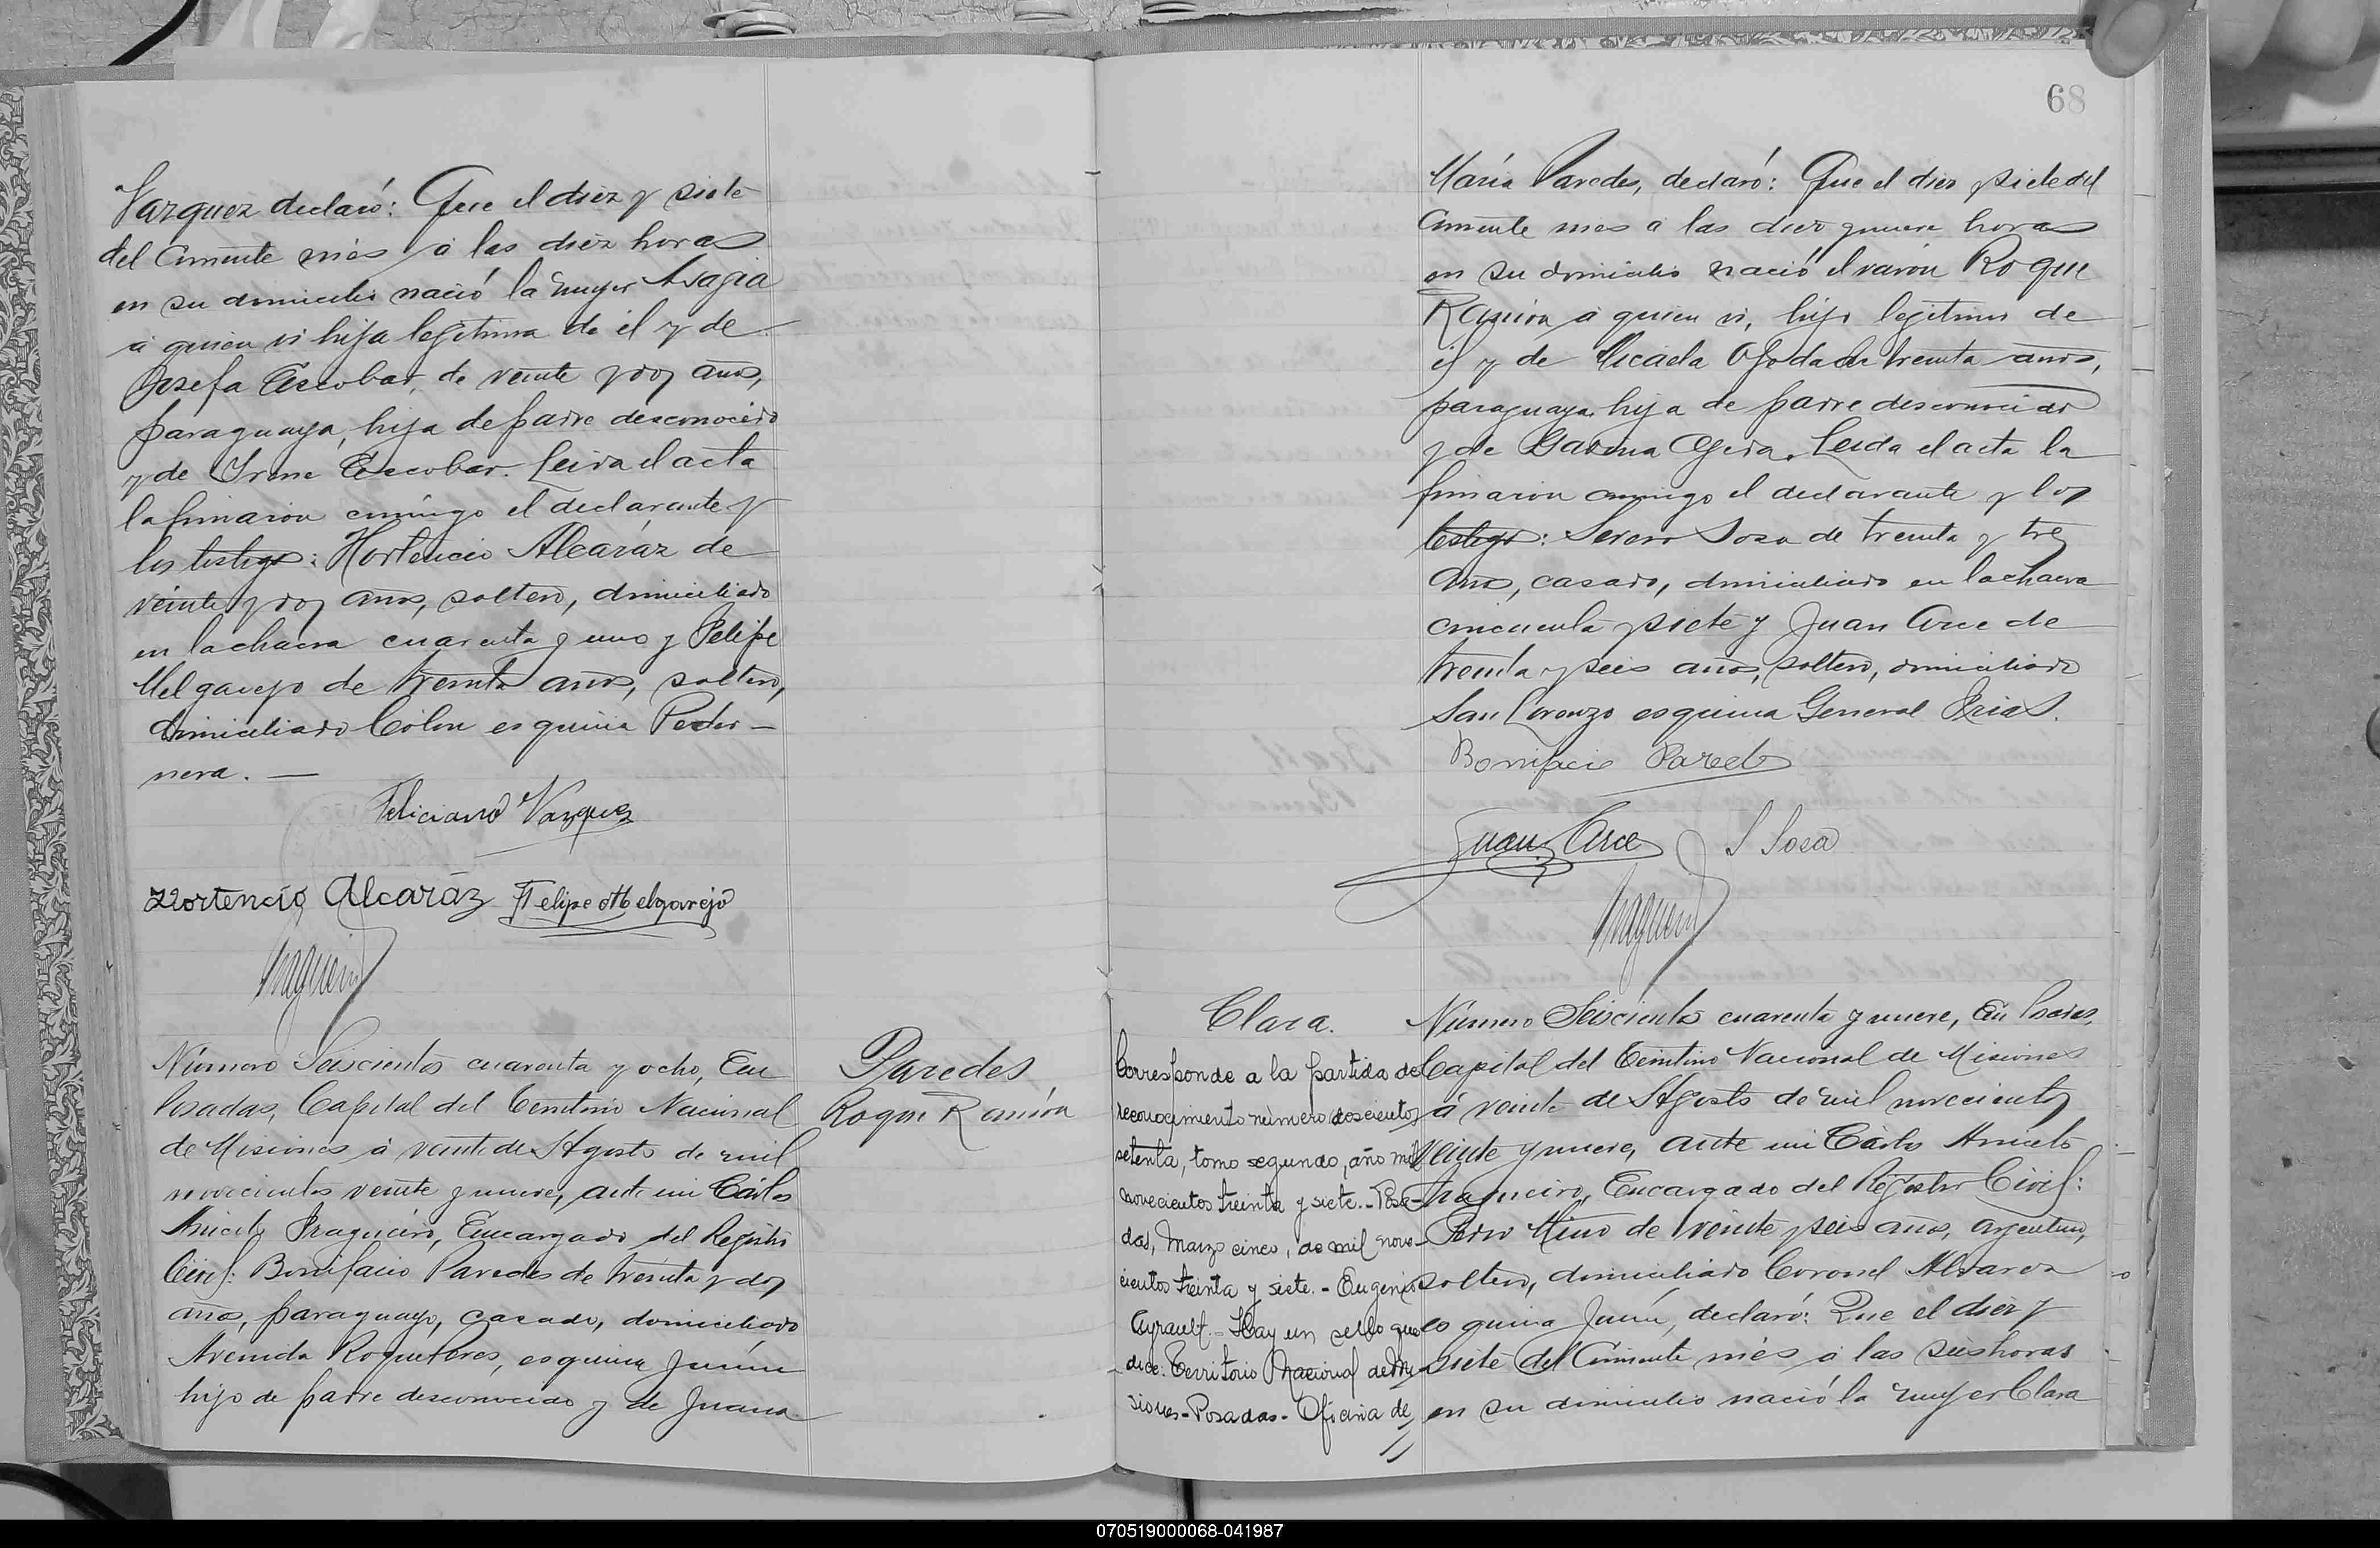 Vazquez declaró: Que el diez y siete
del corriente més á las diez horas
en su domicilio nació la mujer
á quien vi hija legítima de él y de
Josefa Escobar, de veinte y dos años,
paraguaya, hija de padre desconocido
y de Irene Escobar. Leida el acta
la firmaron conmigo el declarante y
los testigos: Hortencio Alcaráz de
veinte y dos años, soltero, domiciliado
en la chacra cuarenta y uno y Felipe
Melgarejo de treinta años, soltero,
domiciliado Colon esquina Peder-
nera. —
Feliciano Vazquez
Hortencio Alcaráz Felipe Melgarejo
Número Seiscientos cuarenta y ocho, En
Posadas, Capital del Territorio Nacional
de Misiones á veinte de Agosto de mil
novecientos veinte y nueve, ante mi Cárlos
Aniceto Fragueiro, Encargado del Registro
Civil: Bonifacio Paredes de treinta y dos
años, paraguayo, casado, domiciliado
Avenida Roque Perez, esquina Junín
hijo de padre desconocido y de Juana
Paredes
Roque Ramón
68
María Paredes, declaró: Que el diez y siete del
corriente mes á las diez y nueve horas
en su domicilio nació el varón Roque
Ramón á quien vi, hijo legítimo de
él y de Micaela Ojeda de treinta años,
paraguaya, hija de padre desconocido
y de Ojeda. Leida el acta la
firmaron conmigo el declarante y los
testigos: Severo Sosa de treinta y tres
años, casado, domiciliado en la chacra
cincuenta y siete y Juan Arce de
treinta y seis años, soltero, domiciliado
San Lorenzo esquina General Frias.
Bonifacio Paredes
Juan Arce S Sosa
Clara.
Corresponde a la partida de
reconocimiento número doscientos
setenta, tomo segundo, año mil
novecientos treinta y siete. - Posa-
das, Marzo cinco, de mil nove-
cientos treinta y siete. - Eugenio
Ayrault. - Hay un sello que
dice: Territorio Nacional de Mi-
siones - Posadas - Oficina de
Número Seiscientos cuarenta y nueve, En Posadas,
Capital del Territorio Nacional de Misiones
á veinte de Agosto de mil novecientos
veinte y nueve, ante mi Cárlos Aniceto
Fragueiro, Encargado del Registro Civil:
Pedro Miño de veinte y seis años, argentino,
soltero, domiciliado Coronel Alvarez
esquina Junín, declaró: Que el diez y
siete del corriente més á las seis horas
en su domicilio nació la mujer Clara
070519000068-041987